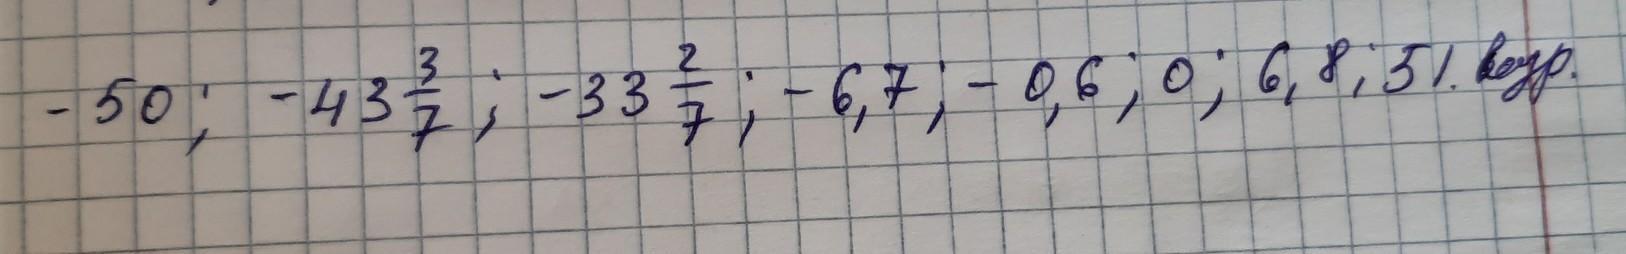 -50; -43 3/7; -33 2/7; -6,7; -0,6; 0; 6,8; 51. возр.